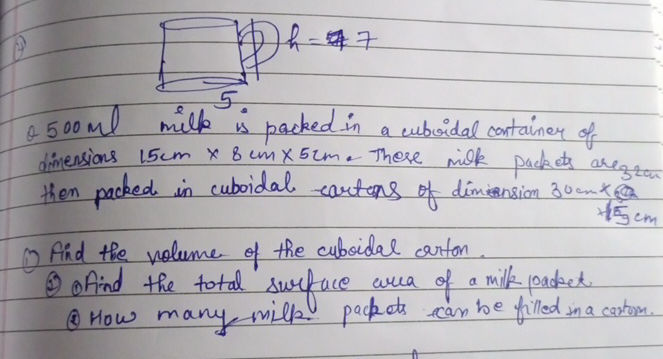 h = 7
5
Q 500 ml milk is packed in a cuboidal container of
dimensions 15cm × 8cm × 5cm. These milk packets are
32cm
then packed in cuboidal cartons of dimension 30cm ×
× 15cm
① Find the volume of the cuboidal carton.
② Find the total surface area of a milk packet
③ How many milk packets can be filled in a carton.